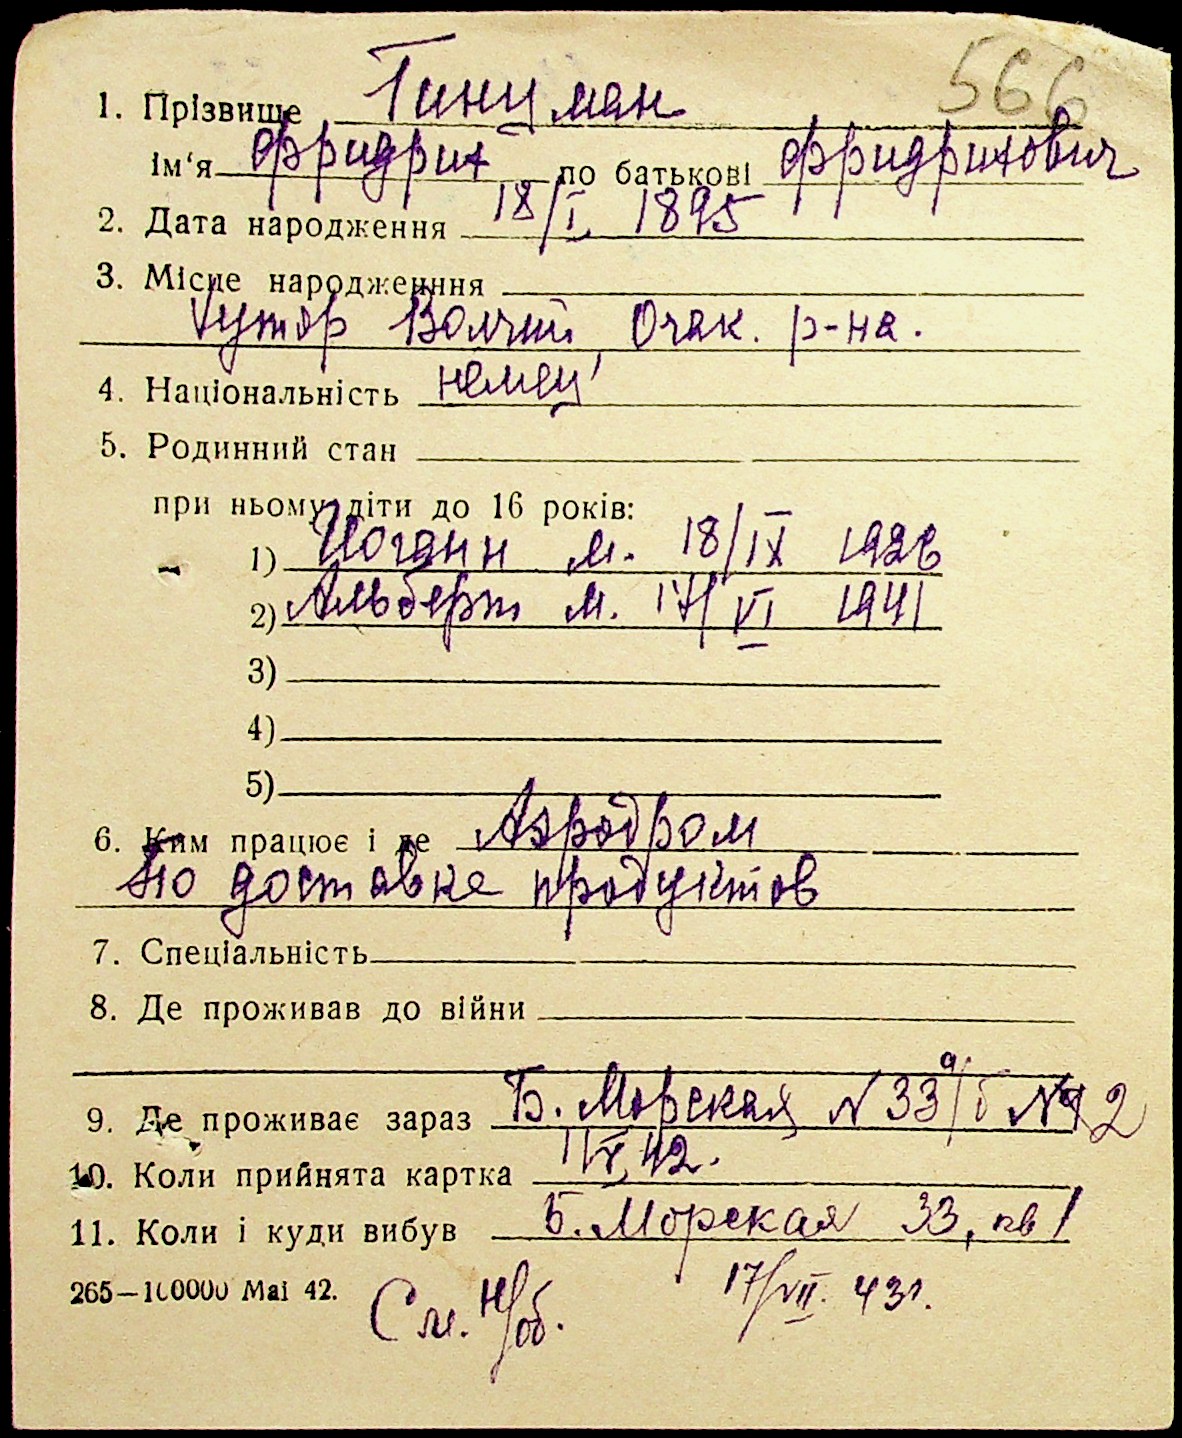 566
1. Прізвище Гинцман
ім'я Фридрих по батькові Фридрихович
2. Дата народження 18/I 1895
3. Місце народженння
Хутор Волчий, Очак. р-на.
4. Національність немец
5. Родинний стан
при ньому діти до 16 років:
1) Иоганн м. 18/IX 1926
2) Альберт м. 17/VI 1941
3)
4)
5)
6. Ким працює і де Аэродром
по доставке продуктов
7. Спеціальність
8. Де проживав до війни
9. Де проживає зараз Б. Морская N 33 а/б №
10. Коли прийнята картка 1/V 42.
11. Коли і куди вибув Б. Морская 33, кв 1
265—100000 Маі 42. См. н/об. 17/VII. 43г.